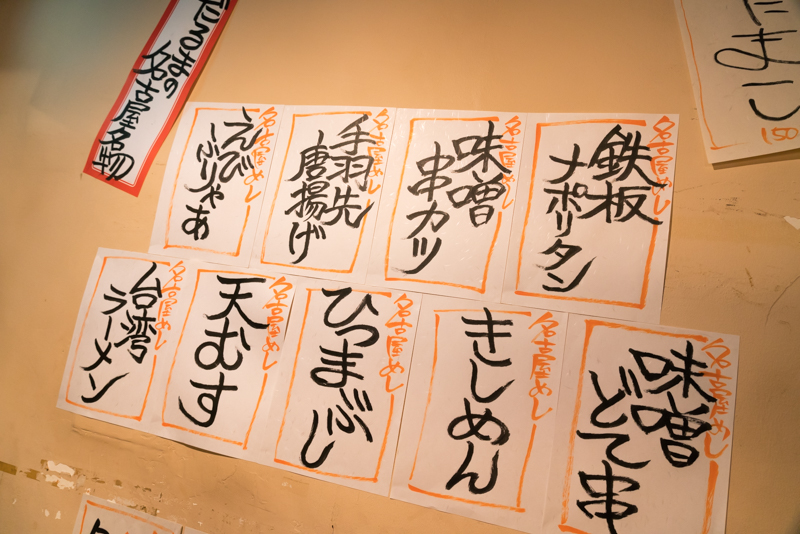 だるまの
名古屋名物
たまご
150
名古屋めし
鉄板
ナポリタン
名古屋めし
味噌
串カツ
名古屋めし
手羽先
唐揚げ
名古屋めし
えび
ふりゃあ
名古屋めし
味噌
どて串
名古屋めし
きしめん
名古屋めし
ひつまぶし
名古屋めし
天むす
名古屋めし
台湾
ラーメン